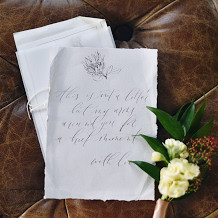 this is not a letter
but my arms
around you for
a brief moment